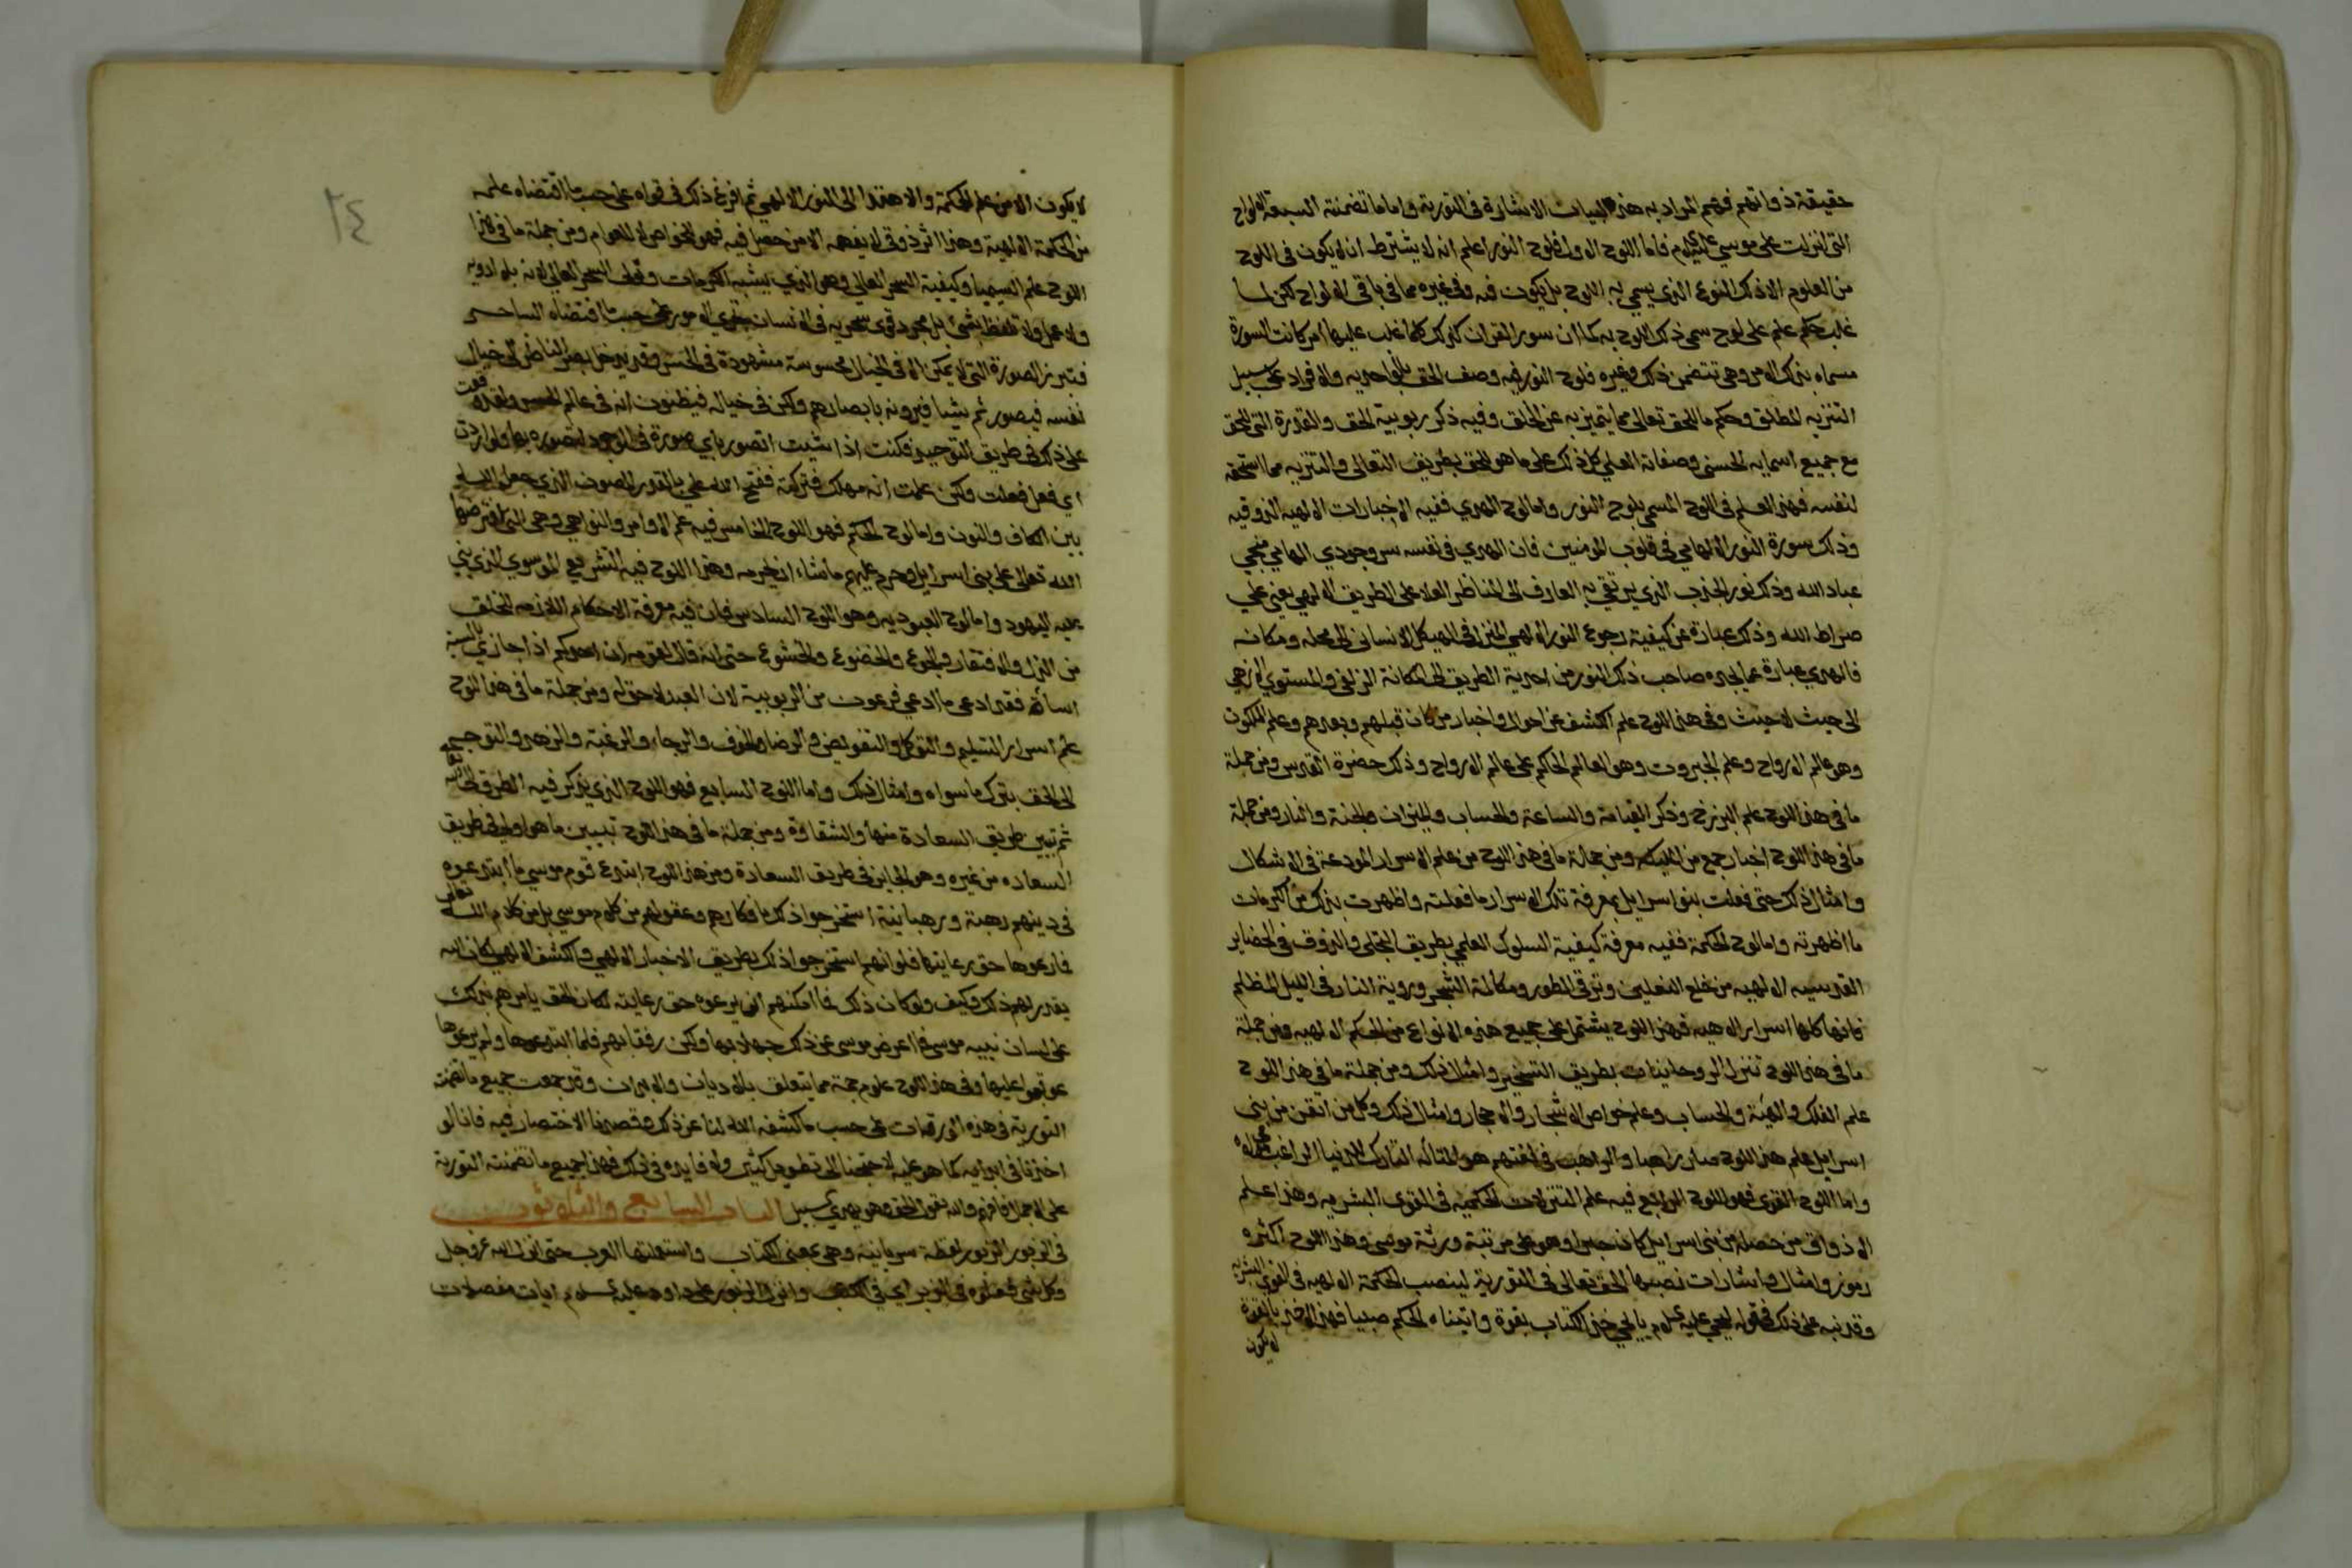 حقيقة ذواتهم فهم المراد به هذه البيان الاشارة في التورية واما ما تضمنته السبعة الالواح
التي انزلت على موسى عليه السلام فاما اللوح الاول فلوح النور اعلم انه لا يشترط ان لا يكون في اللوح
من العلوم الا ذلك النوع الذي يسمى به اللوح بل يكون فيه وفي غيره مما في باقي الالواح لكن لما
غلب حكم علم على لوح سمي ذلك اللوح به كما ان سور القران كذلك كلما غلب عليها امر كانت السورة
مسماه بذلك الامر وهي تتضمن ذلك وغيره فلوح النور فيه وصف الحق بالواحديه والافراد على سبيل
التنزيه المطلق وحكم ما للحق تعالى مما يتميز به عن الخلق وفيه ذكر ربوبية الحق والقدرة التي للحق
مع جميع اسمايه الحسنى وصفاته العلى كل ذلك على ما هو للحق بطريق التعالي والتنزيه مما استحقه
لنفسه فهذا العلم في اللوح المسمى بلوح النور واما لوح الهدي ففيه الاخبارات الالهيه الذوقيه
وذلك سورة النور الالهامي في قلوب المومنين فان الهدي في نفسه سر وجودي الهامي يفجي
عباد الله وذلك نور الجذب الذي يرتقي به العارف الى المناظر العلا على الطريق الالهي يعني على
صراط الله وذلك عبارة عن كيفية رجوع النور الالهي المنزل في الهيكل الانساني الى محله ومكانه
فالهدي عبارة عما يجده صاحب ذلك النور من احدية الطريق الى المكانة الزلفى والمستوي الازهي
الى حيث لا حيث وفي هذا اللوح علم الكشف عن احوال واخبار من كان قبلهم وبعدهم وعلم الملكوت
وهو عالم الارواح وعلم الجبروت وهو العالم الحاكم على عالم الارواح وذلك حضرة القدس ومن جملة
ما في هذا اللوح علم البرزخ وذكر القيامة والساعة والحساب والميزان والجنة والنار ومن جملة
ما في هذا اللوح اخبار جمع من الليكه ومن جملة ما في هذا اللوح من علم الاسرار المودعة في الاشكال
وامثال ذلك حتى فعلت بنو اسرايل بمعرفة تلك الاسرار ما فعلت واظهرت بذلك من الكرمات
ما اظهرته واما لوح الحكمة ففيه معرفة كيفية السلوك العلمي بطريق التجلي والذوق في الحضاير
القدسيه الالهيه من خلع النعلين وترقي الطور ومكالمة الشجر وروية النار في الليل المظلم
فانها كلها اسرار الاهيه فهذا اللوح يشتمل على جميع هذه الانواع من الحكم الالهيه ومن جملة
ما في هذا اللوح تنزل الروحانيات بطريق التسخير وامثال ذلك ومن جملة ما في هذا اللوح
علم الفلك والهيئة والحساب وعلم خواص الاشجار والاحجار وامثال ذلك وكل من اتقن من بني
اسرايل علم هذا اللوح صار راهبا والراهب في لغتهم هو المتاله التارك للدنيا الراغب في مولاه
واما اللوح القوي فهو اللوح الرابع فيه علم التنزلات الحكميه في القوى البشريه وهذا علم
الاذواق من حصله من بني اسرايل كان حبرا وهو على مرتبة ورثة موسى وهذا اللوح اكثره
رموز وامثال واشارات نصبها الحق تعالى في التورية لينصب الحكمة الالهيه في القوى البشريه
وقد نبه على ذلك في قوله ليحيى عليه السلام يا يحي خذ الكتاب بقوة واتيناه الحكم صبيا فهذا الاخذ بالقوة
لا يكون
٢٤
لا يكون الا من علم الحكمة والاهتدا الى النور الالهي ثم افرغ ذلك في قواه على حسب ما اقتضاه علمه
من الحكمة الالهية وهذا اثر ذوقي لا يفهمه الا من حصل فيه فهو للخواص لا للعوام ومن جملة ما في هذا
اللوح علم السيميا وكيفية السحر العالي وهو الذي يشبه الكرمات وقولي السحر العالي لانه بلا ادويه
ولا عمل ولا تلفظ بشئ بل بمجرد قوى سحريه في الانسان تجري الامور على حسب ما اقتضاه الساحر
فتبرز الصورة التي لا يمكن الا في الخيال محسوسة مشهودة في الحس وقد يدخل بصر الناظر الى خيال
نفسه فيصور ثم شيا فيرونه بابصارهم ولكن في خياله فيظنون انه في عالم الحس ولقد وقعت
على ذلك في طريق التوحيد فكنت اذا شيت اتصور باي صورة في الوجود اتصوره بها ولو اردت
اي فعل فعلت ولكن علمت انه مهلك فتركته ففتح الله علي بالقدر المصون الذي جعله الله
بين الكاف والنون واما لوح الحكم فهو اللوح الخامس فيه علم الاوامر والنواهي وهي التي افترضها
الله تعالى على بني اسرايل وحرم عليهم ما شاء ان يحرمه وهذا اللوح فيه التشريع الموسوي الذي بني
عليه اليهود واما لوح العبوديه وهو اللوح السادس فان فيه معرفة الاحكام اللازمه للخلق
من الذل والافتقار والجوع والخضوع والخشوع حتى انه قال لقومه ان احدكم اذا جازى بالسيئة
اساة فقد ادعى ما ادعى فرعون من الربوبية لان العبد لا حق له ومن جملة ما في هذا اللوح
علم اسرار التسليم والتوكل والتفويض والرضا والخوف والرجا والرغبة والزهد والتوجه
الى الحق بترك ما سواه وامثال ذلك واما اللوح السابع فهو اللوح الذي يذكر فيه الطرق الى الله تعالى
ثم تبين طريق السعادة منها والشقاوة ومن جملة ما في هذا اللوح تبيين ما هو اولى في طريق
السعاده من غيره وهو الجايز في طريق السعادة ومن هذا اللوح ابتدع قوم موسى ما ابتدعوه
في دينهم رهبة ورهبانية استخرجوا ذلك بافكارهم وعقولهم من كلام موسى بل من كلام الله تعالى
فما رعوها حق رعايتها فلو انهم استخرجوا ذلك بطريق الاخبار الالهي والكشف الالهي لكان الله
يقدر لهم ذلك وكيف ولو كان ذلك مما امكنهم ان يرعوه حق رعايته لكان الحق يامرهم بذلك
على لسان نبيه موسى فما اعرض موسى عن ذلك جهلا بها ولكن رفقا بهم فلما ابتدعوها ولم يرعوها
عوقبوا عليها وفي هذا اللوح علوم جمة مما يتعلق بالاديان والابدان وقد جمعت جميع ما تضمنته
التورية في هذه الورقات على حسب ما كشف الله لنا عن ذلك وقصدنا الاختصار فيه فانا لو
اخذنا في ابدايه كما هو عليه لاحتجنا الى تطويل كثير ولا فايده في ذلك فهذا جميع ما تضمنته التورية
على الاجمال فافهم والله يقول الحق وهو يهدي السبيل الباب السابع والثلاثون
في الزبور الزبور لفظة سريانية وهي بمعنى الكتاب واستعملتها العرب حتى انزل الله عز وجل
وكل شئ فعلوه في الزبر اي في الكتب وانزل الزبور على داود عليه السلام ايات مفصلات